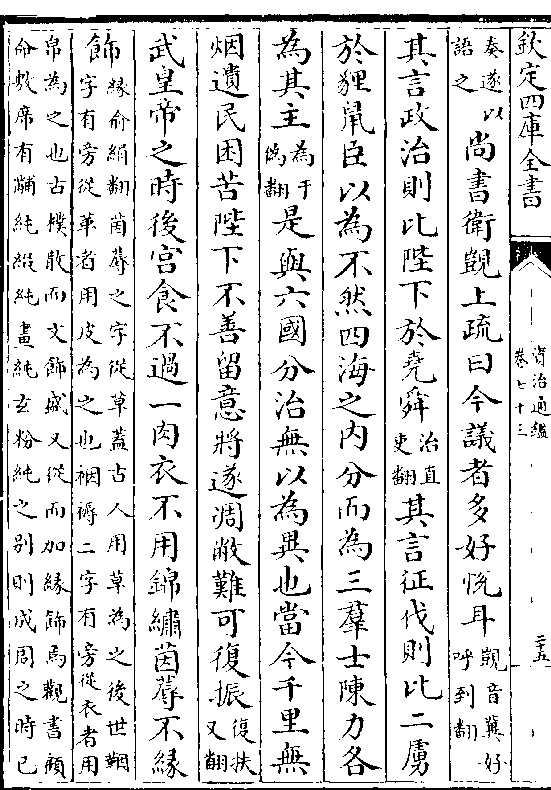 欽定四庫全書
資治通鑑
卷七十三
二五
奏遂以
語之
尚書衛覬上疏曰今議者多好悅耳
覬音冀好
呼到翻
其言政治則比陛下於堯舜
治直
吏翻
其言征伐則比二虜
於貍鼠臣以為不然四海之内分而為三羣士陳力各
為其主
為于
偽翻
是與六國分治無以為異也當今千里無
烟遺民困苦陛下不善留意將遂凋敝難可復振
復扶
又翻
武皇帝之時後宫食不過一肉衣不用錦繡茵蓐不緣
飾
緣俞絹翻茵蓐之字從草蓋古人用草為之後世鞇
字有旁從革者用皮為之也裀褥二字有旁從衣者用
帛為之也古樸散而文飾盛又從而加緣飾焉觀書顧
命敷席有黼純綴純畫純玄粉純之别則成周之時已